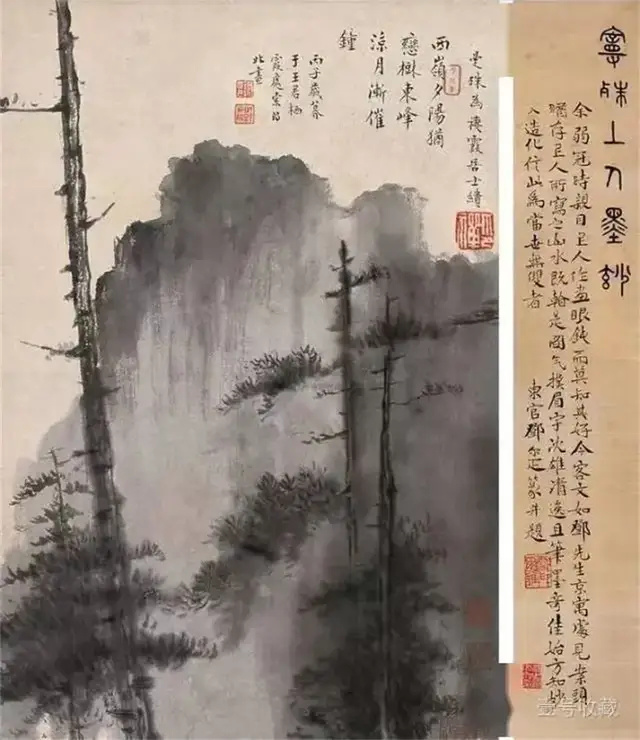 曼殊上人墨妙
余弱冠時親目上人作畫眼鈍而莫知其好今客文如鄧先生京寓處見案頭
存上人所寫之山水既是圖氣眉宇沈雄清逸且筆墨奇佳始方知妙
入造化信此為當世無雙者
東官鄧尔疋篆并題
曼殊為棲霞居士繪
西嶺夕陽猶
戀樹東峰
涼月漸催
鐘
丙子歲莫
于王君栖
霞處索
北畫
壹号收藏